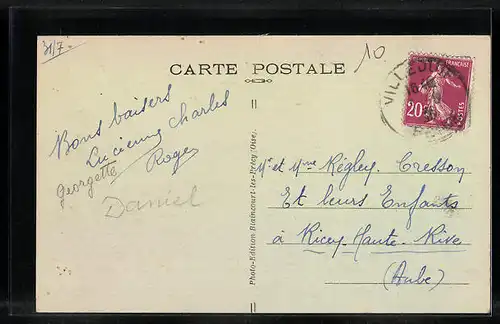 31/7.
10
CARTE POSTALE
VILLEJUIF
FRANÇAISE
20
POSTES
Bons baisers
Lucienne Charles
Georgette Roger
Daniel
Photo-Edition Blaincourt-les-Précy (Oise).
Mr et Mme Régley. Cresson
Et leurs Enfants
à Ricey-Haute-Rive
(Aube)